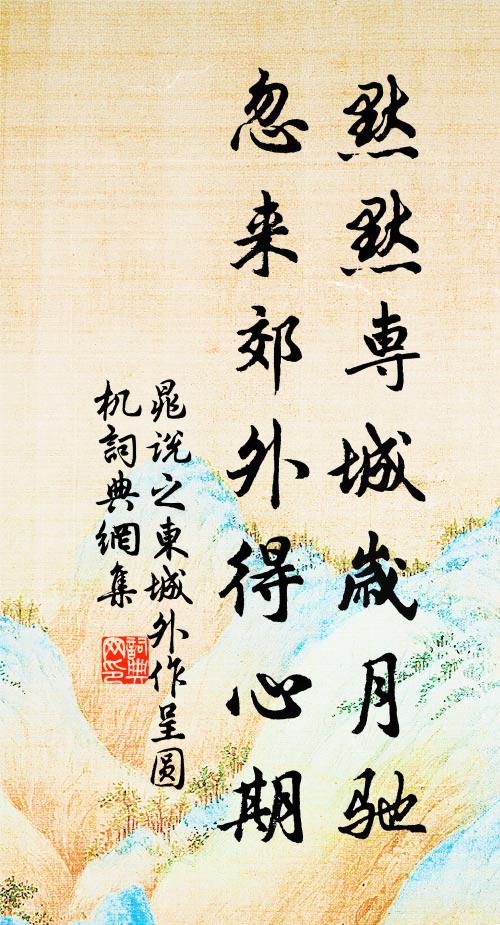 黙黙専城歳月驰
忽来郊外得心期
晁说之東城外作呈圆
机詞典網集
詞典
网印